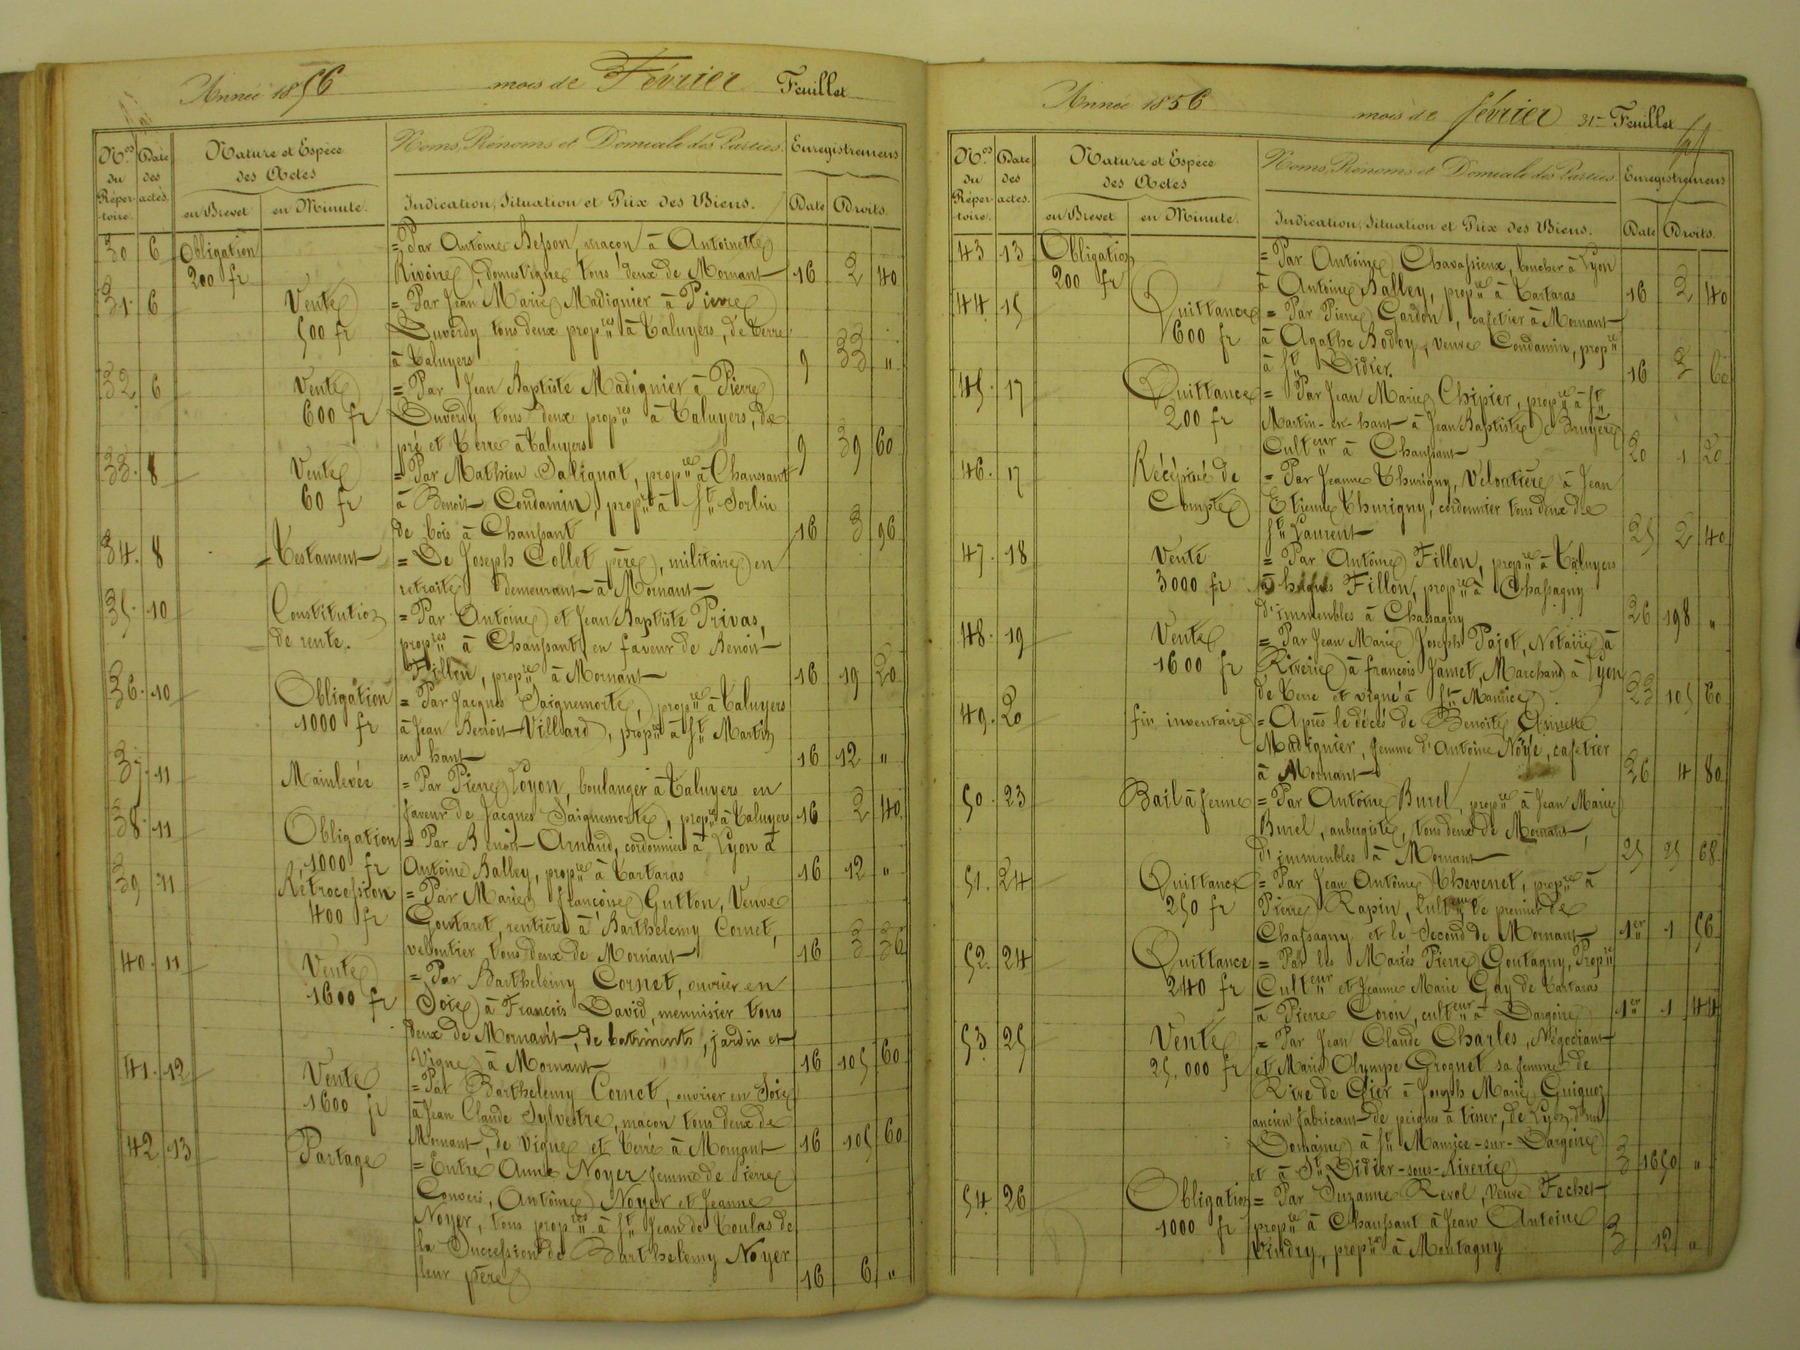 Année 1856 mois de Février Feuillet
Nos du Répertoire. Date des actes. Nature et Espèce des Actes Noms, Prénoms et Domicile des Parties. Enregistremens
en Brevet en Minute. Indication, Situation et Prix des Biens. Date Droits.
30 6 Obligation = Par Antoine Besson, maçon à Antoinette
200 fr Rivoire, domestique tous deux de Mornant 16 2 40
31. 6 Vente = Par Jean Marie Madignier à Pierre
500 fr Duverdy tous deux propres à Taluyers, de terre
à Taluyers 9 33 "
32. 6 Vente = Par Jean Baptiste Madignier à Pierre
600 fr Duverdy tous deux propres à Taluyers, de
pré et terre à Taluyers 9 39 60
33. 8 Vente = Par Mathieu Salignat, propre à Chaussant
60 fr à Benoit Condamin, propre à St Sorlin
de bois à Chaussant 16 3 96
34. 8 Testament = De Joseph Collet père, militaire en
retraite demeurant à Mornant
35. 10 Constitution = Par Antoine et Jean Baptiste Privas,
de rente. propres à Chaussant en faveur de Benoit
Fillon, propre à Mornant 16 19 20
36. 10 Obligation = Par Jacques Saignemorte, propre à Taluyers
1000 fr à Jean Benoit Villard, propre à St Martin
en haut 16 12 "
37. 11 Mainlevée = Par Pierre Voyon, boulanger à Taluyers en
faveur de Jacques Saignemorte, propre à Taluyers 16 2 40
38. 11 Obligation = Par Benoit Arnaud, cordonnier à Lyon à
1000 fr Antoine Balley, propre à Tartaras 16 12 "
39 11 Rétrocession = Par Marie Françoise Gutton, Veuve
400 fr Goutaret, rentière à Barthelemy Cornet,
veloutier tous deux de Mornant 16 3 36
40. 11 Vente = Par Barthelemy Cornet, ouvrier en
1600 fr Soie à François David, menuisier tous
deux de Mornant, de batiments, jardin et
Vigne à Mornant 16 105 60
41. 12 Vente = Par Barthelemy Cornet, ouvrier en Soie
1600 fr à Jean Claude Sylvestre, maçon tous deux de
Mornant, de Vigne et terre à Mornant 16 105 60
42 13 Partage = Entre Anne Noyer femme de Pierre
Convers, Antoine Noyer et Jeanne
Noyer, tous propres à St Jean de Toulas de
la Succession de Barthelemy Noyer
leur père 16 6 "
Année 1856 mois de février 31me Feuillet
Nos du Répertoire. Date des actes. Nature et Espèce des Actes Noms, Prénoms et Domicile des Parties Enregistremens
en Brevet en Minute. Indication, Situation et Prix des Biens. Date Droits.
43 13 Obligation = Par Antoine Chavassieux, boucher à Lyon
200 fr à Antoine Balley, propre à Tartaras 16 2 40
44. 15 Quittance = Par Pierre Gardon, cafetier à Mornant
600 fr à Agathe Bodoy, veuve Condamin, propre
à St Didier. 16 3 60
45. 17 Quittance = Par Jean Marie Chipier, propre à St
200 fr Martin-en-haut à Jean Baptiste Bruyère
Culteur à Chaussant 20 1 20
46. 17 Récépissé de = Par Jeanne Thurigny, Veloutière à Jean
Compte Etienne Thurigny, cordonnier tous deux de
St Laurent 25 2 40
47. 18 Vente = Par Antoine Fillon, propre à Taluyers
3000 fr à Fillon, propre à Chassagny
d'immeubles à Chassagny 26 198 "
48. 19 Vente = Par Jean Marie Joseph Pajot, Notaire à
1600 fr Riverie à françois Jamet, Marchand à Lyon
de terre et vigne à St Maurice 23 105 60
49. 20 fin inventaire = Après le décès de Benoite Annette
Madignier, femme d'Antoine Noye, cafetier
à Mornant 26 4 80
50. 23 Bail à ferme = Par Antoine Burel, propre à Jean Marie
Burel, aubergiste, tous deux de Mornant,
d'immeubles à Mornant 25 25 68
51. 24 Quittance = Par Jean Antoine Thevenet, propre à
250 fr Pierre Rapin, Culteur le premier de
Chassagny et le Second de Mornant 1er 1 56
52. 24 Quittance = Par les Mariés Pierre Goutagny, Propre
240 fr Culteur et Jeanne Marie Gay de Tartaras
à Pierre Coron, culteur à Dargoire 1er 1 44
53. 25 Vente = Par Jean Claude Charles, Négociant
25,000 fr et Marie Olympe Grognet sa femme de
Rive de Gier à Joseph Marie Guiguoz
ancien fabricant de peignes à tisser, de Lyon d'un
Domaine à St Maurice-sur-Dargoire
et à St Didier-sous-Riverie 3 1650 "
54. 26 Obligation = Par Suzanne Revol, Veuve Fechet
1000 fr propre à Chaussant à Jean Antoine
Vindry, propre à Montagny 3 12 "